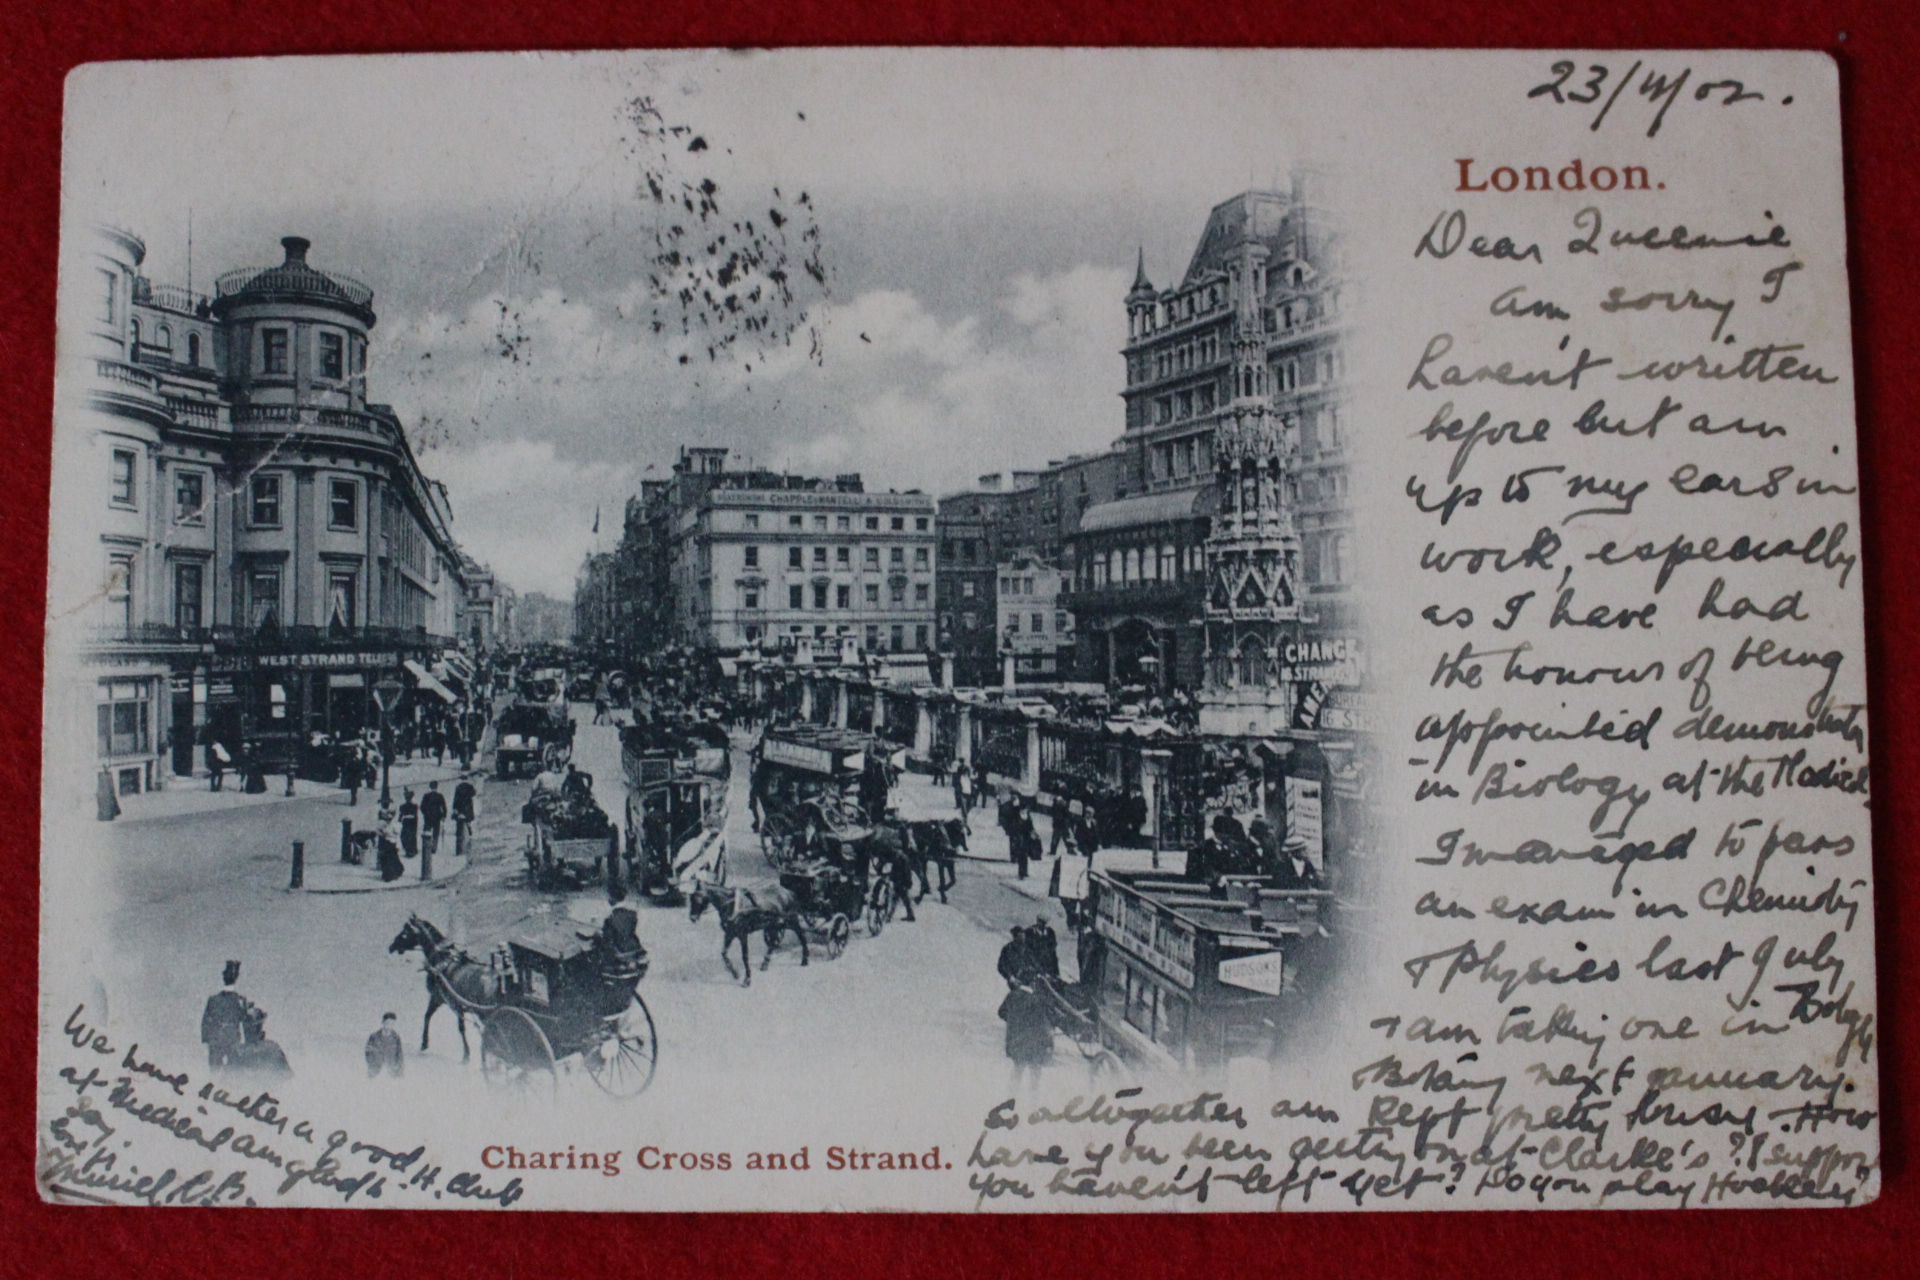 23/11/02.
London.
Dear Queenie
am sorry I
haven't written
before but am
up to my ears in
work, especially
as I have had
the honour of being
appointed demonstrator
in Biology at the Medical.
I managed to pass
an exam in Chemistry
& Physics last July
& am taking one in
Botany next January.
So altogether am kept pretty busy. How
have you been getting on at Clarke's? I suppose
you haven't left yet? Do you play Hockey?
We have rather a good H. Club
at Medical am glad to
say.
Muriel
Charing Cross and Strand.
WEST STRAND TELE
CHAPPLE & MANTELL
CHANGE
STRAND
AME
16 STR
HUDSON'S